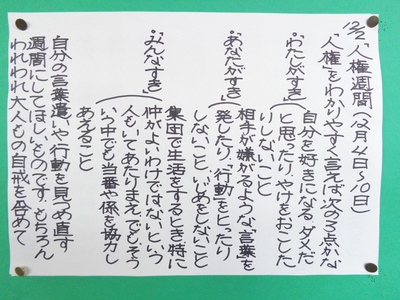 12/5「人権週間」(12月4日〜10日)
「人権」をわかりやすく言えば次の3点かな
「わたしがすき」
自分を好きになる ダメだ
と思ったり、やけをおこした
りしないこと
「あなたがすき」
相手が嫌がるような「言葉を
発したり、行動」をとったり
しないこと、いじめをしないこと
「みんなすき」
集団で生活をするとき特に
仲がよいわけではないという
人もいてあたりまえ でもそう
いう中でも当番や係を協力し
あえること
自分の言葉遣いや行動を見つめ直す
週間にしてほしいものです。もちろん
われわれ大人もの自戒を含めて